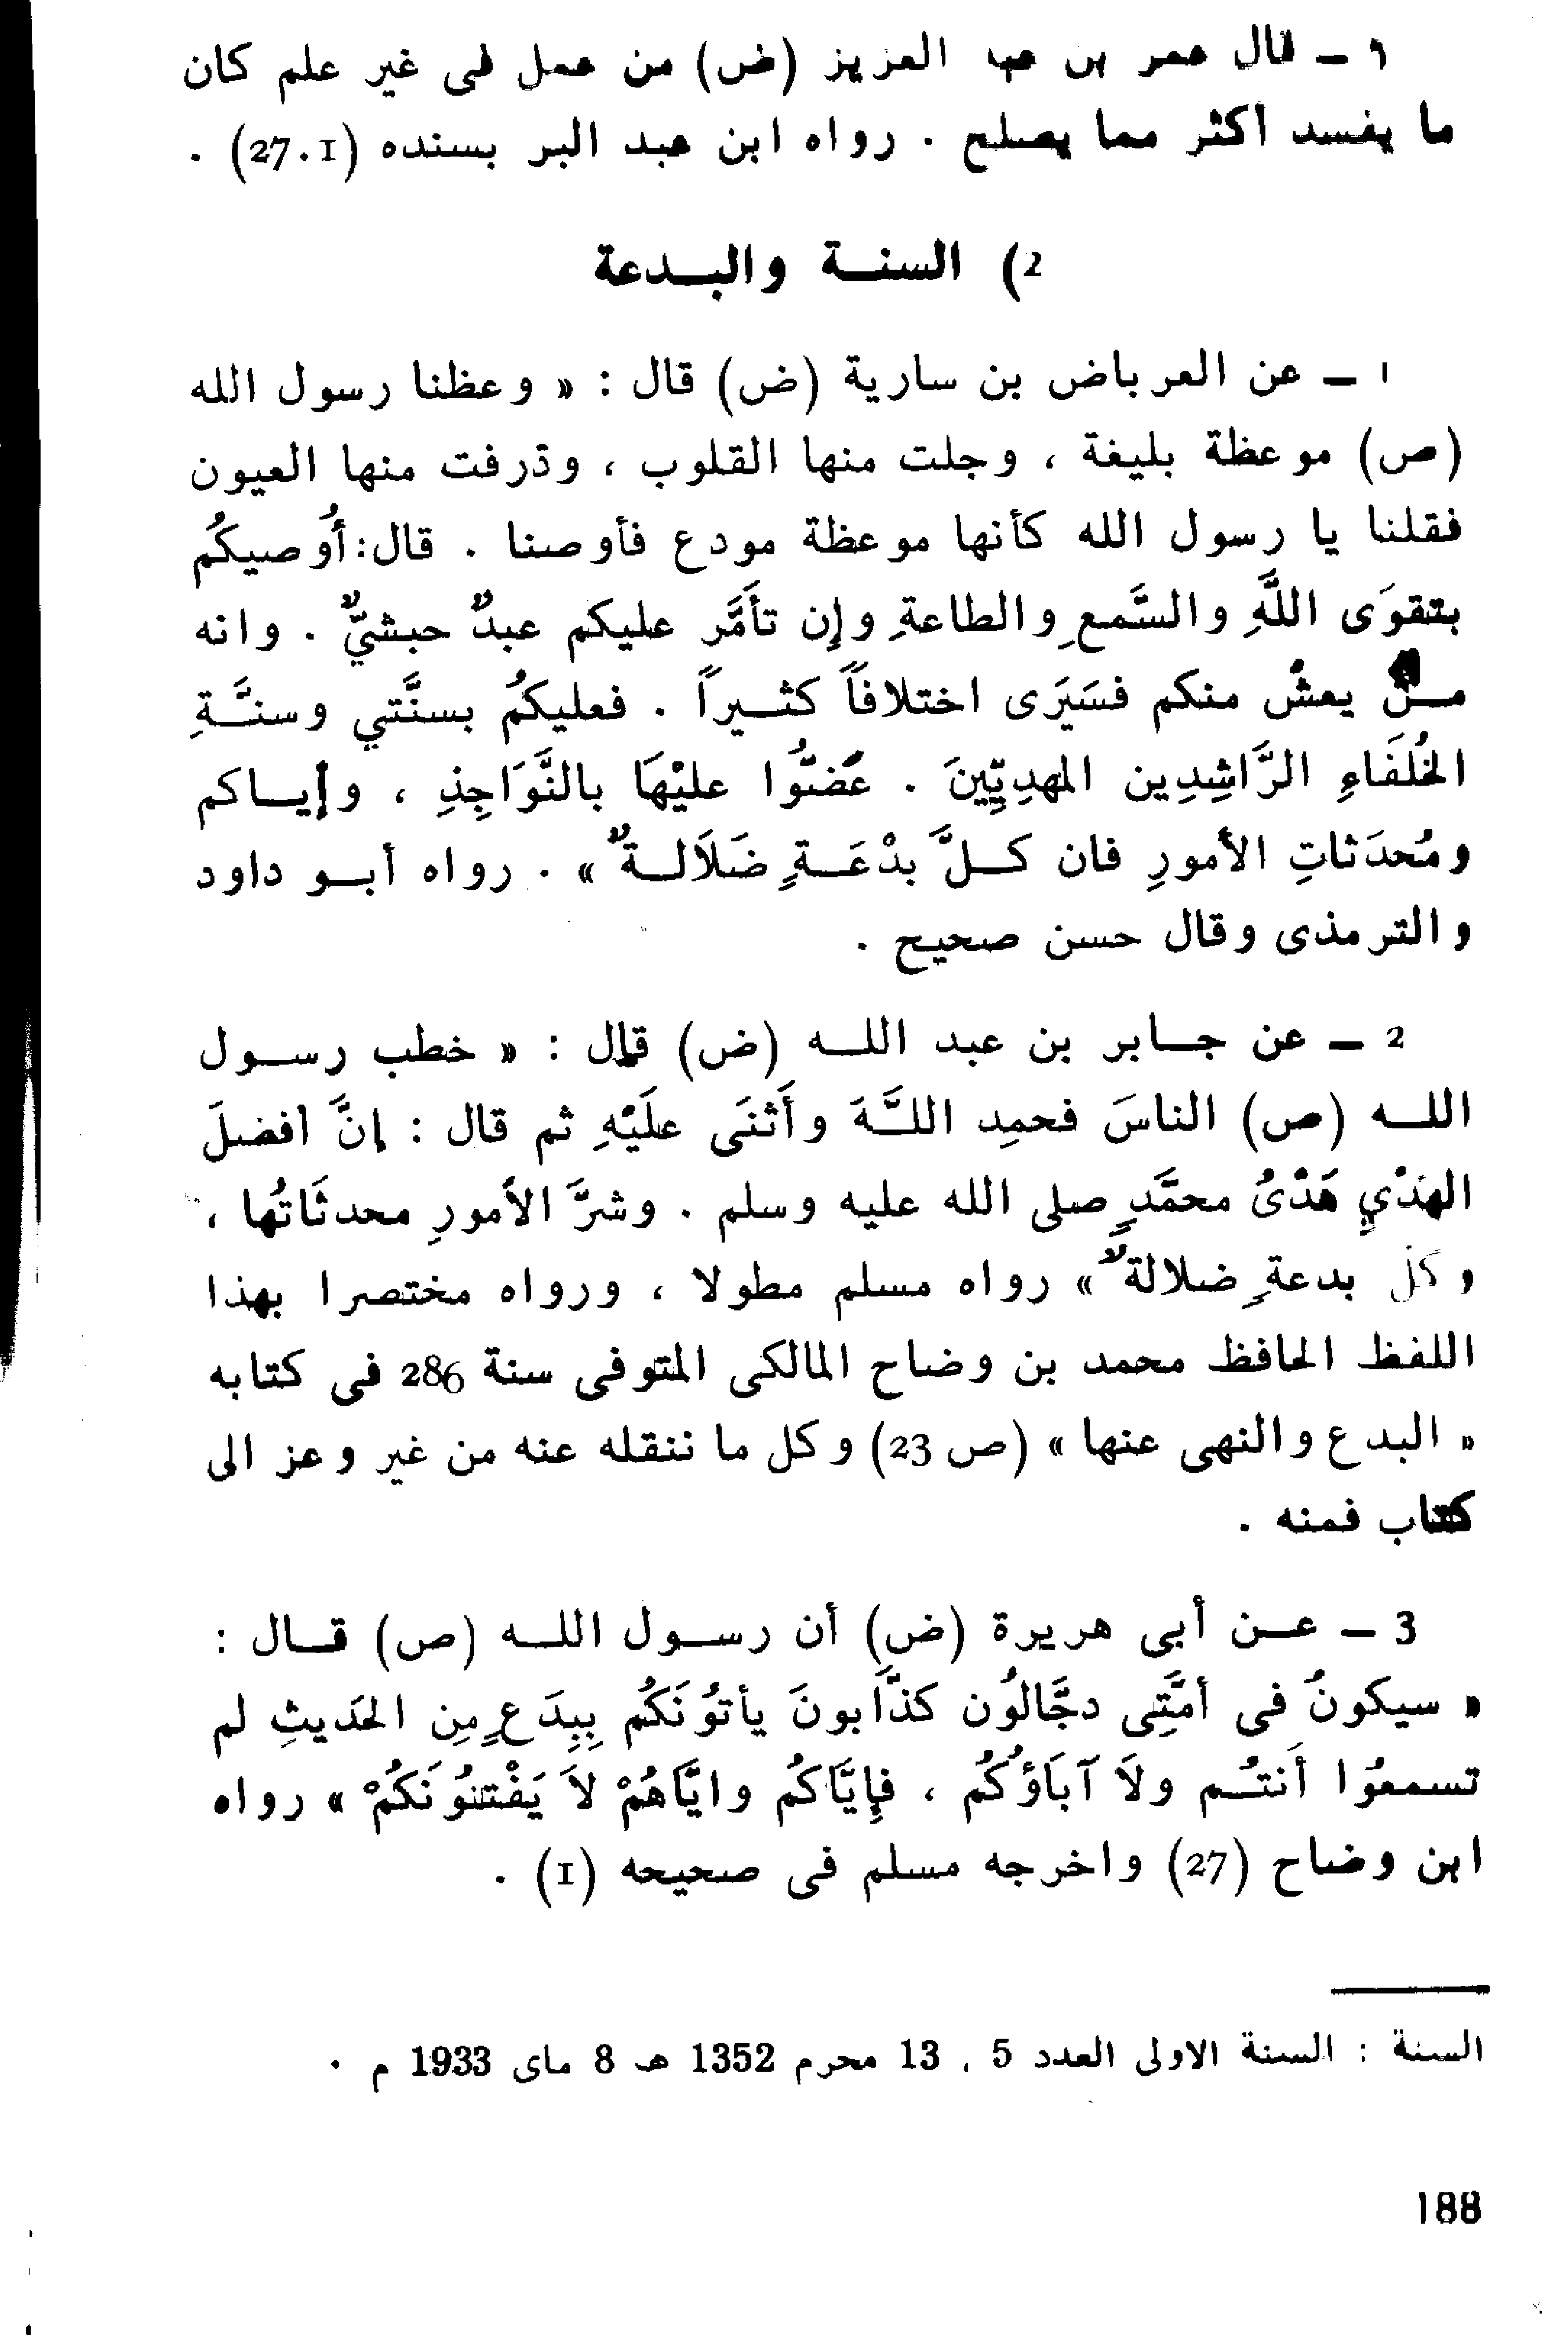 ٦ — قال عمر بن عبد العزيز (ض) من عمل فى غير علم كان
ما يفسد اكثر مما يصلح . رواه ابن عبد البر بسنده (27.1) .
2) السنة والبدعة
1 — عن العرباض بن سارية (ض) قال : « وعظنا رسول الله
(ص) موعظة بليغة ، وجلت منها القلوب ، وذرفت منها العيون
فقلنا يا رسول الله كأنها موعظة مودع فأوصنا . قال: أُوصيكُم
بتقوَى اللَّهِ والسَّمعِ والطاعةِ وإن تأَمَّر عليكم عبدٌ حبشيٌّ . وانه
منْ يعشْ منكم فسَيَرَى اختلافاً كثيراً . فعليكُم بسنَّتي وسنَّةِ
الخُلَفَاءِ الرَّاشِدِين المهدِيِّينَ . عَضُّوا عليْهَا بالنَّوَاجِذِ ، وإياكم
ومُحدَثاتِ الأمورِ فان كلَّ بدْعَةٍ ضَلَالةٌ » . رواه أبو داود
والترمذى وقال حسن صحيح .
2 — عن جابر بن عبد الله (ض) قال : « خطب رسول
الله (ص) الناسَ فحمِد اللَّهَ وأَثنَى علَيْهِ ثم قال : إنَّ افضلَ
الهدْيِ هَدْىُ محمَّدٍ صلى الله عليه وسلم . وشرَّ الأمورِ محدثَاتُها ،
وكل بدعةٍ ضلالةٌ » رواه مسلم مطولا ، ورواه مختصرا بهذا
اللفظ الحافظ محمد بن وضاح المالكى المتوفى سنة 286 فى كتابه
« البدع والنهى عنها » (ص 23) وكل ما ننقله عنه من غير وعز الى
كتاب فمنه .
3 — عن أبى هريرة (ض) أن رسول الله (ص) قال :
« سيكونُ فى أمَّتِى دجَّالُون كذَّابونَ يأتُونَكُم بِبِدَعٍ مِن الحَديثِ لم
تسمعُوا أَنتُم ولاَ آبَاؤُكُم ، فإِيَّاكُم وايَّاهُمْ لاَ يَفْتنُونَكُمْ » رواه
ابن وضاح (27) واخرجه مسلم فى صحيحه (1) .
السنة : السنة الاولى العدد 5 ، 13 محرم 1352 هـ 8 ماى 1933 م .
188